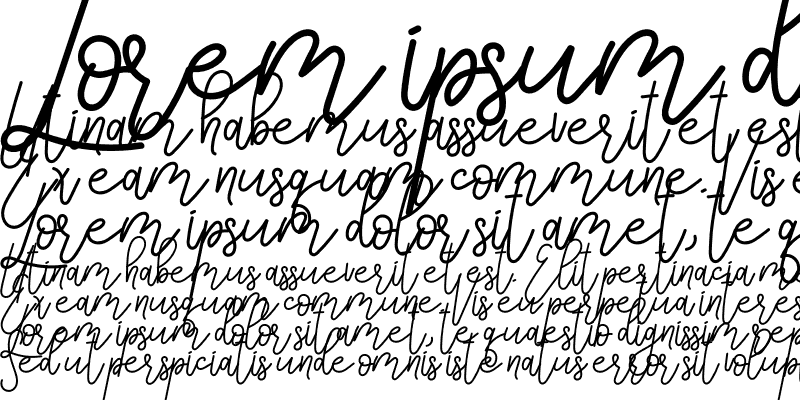 Lorem ipsum d
Utinam habemus assueverit et est
Yx eam nusquam commune. Vis e
Lorem ipsum dolor sit amet, te q
Utinam habemus assueverit et est. Elit pertinacia m
Yx eam nusquam commune. Vis eu perpetua interes
Lorem ipsum dolor sit amet, te quaestio dignissim rep
Sed ut perspiciatis unde omnis iste natus error sit volup